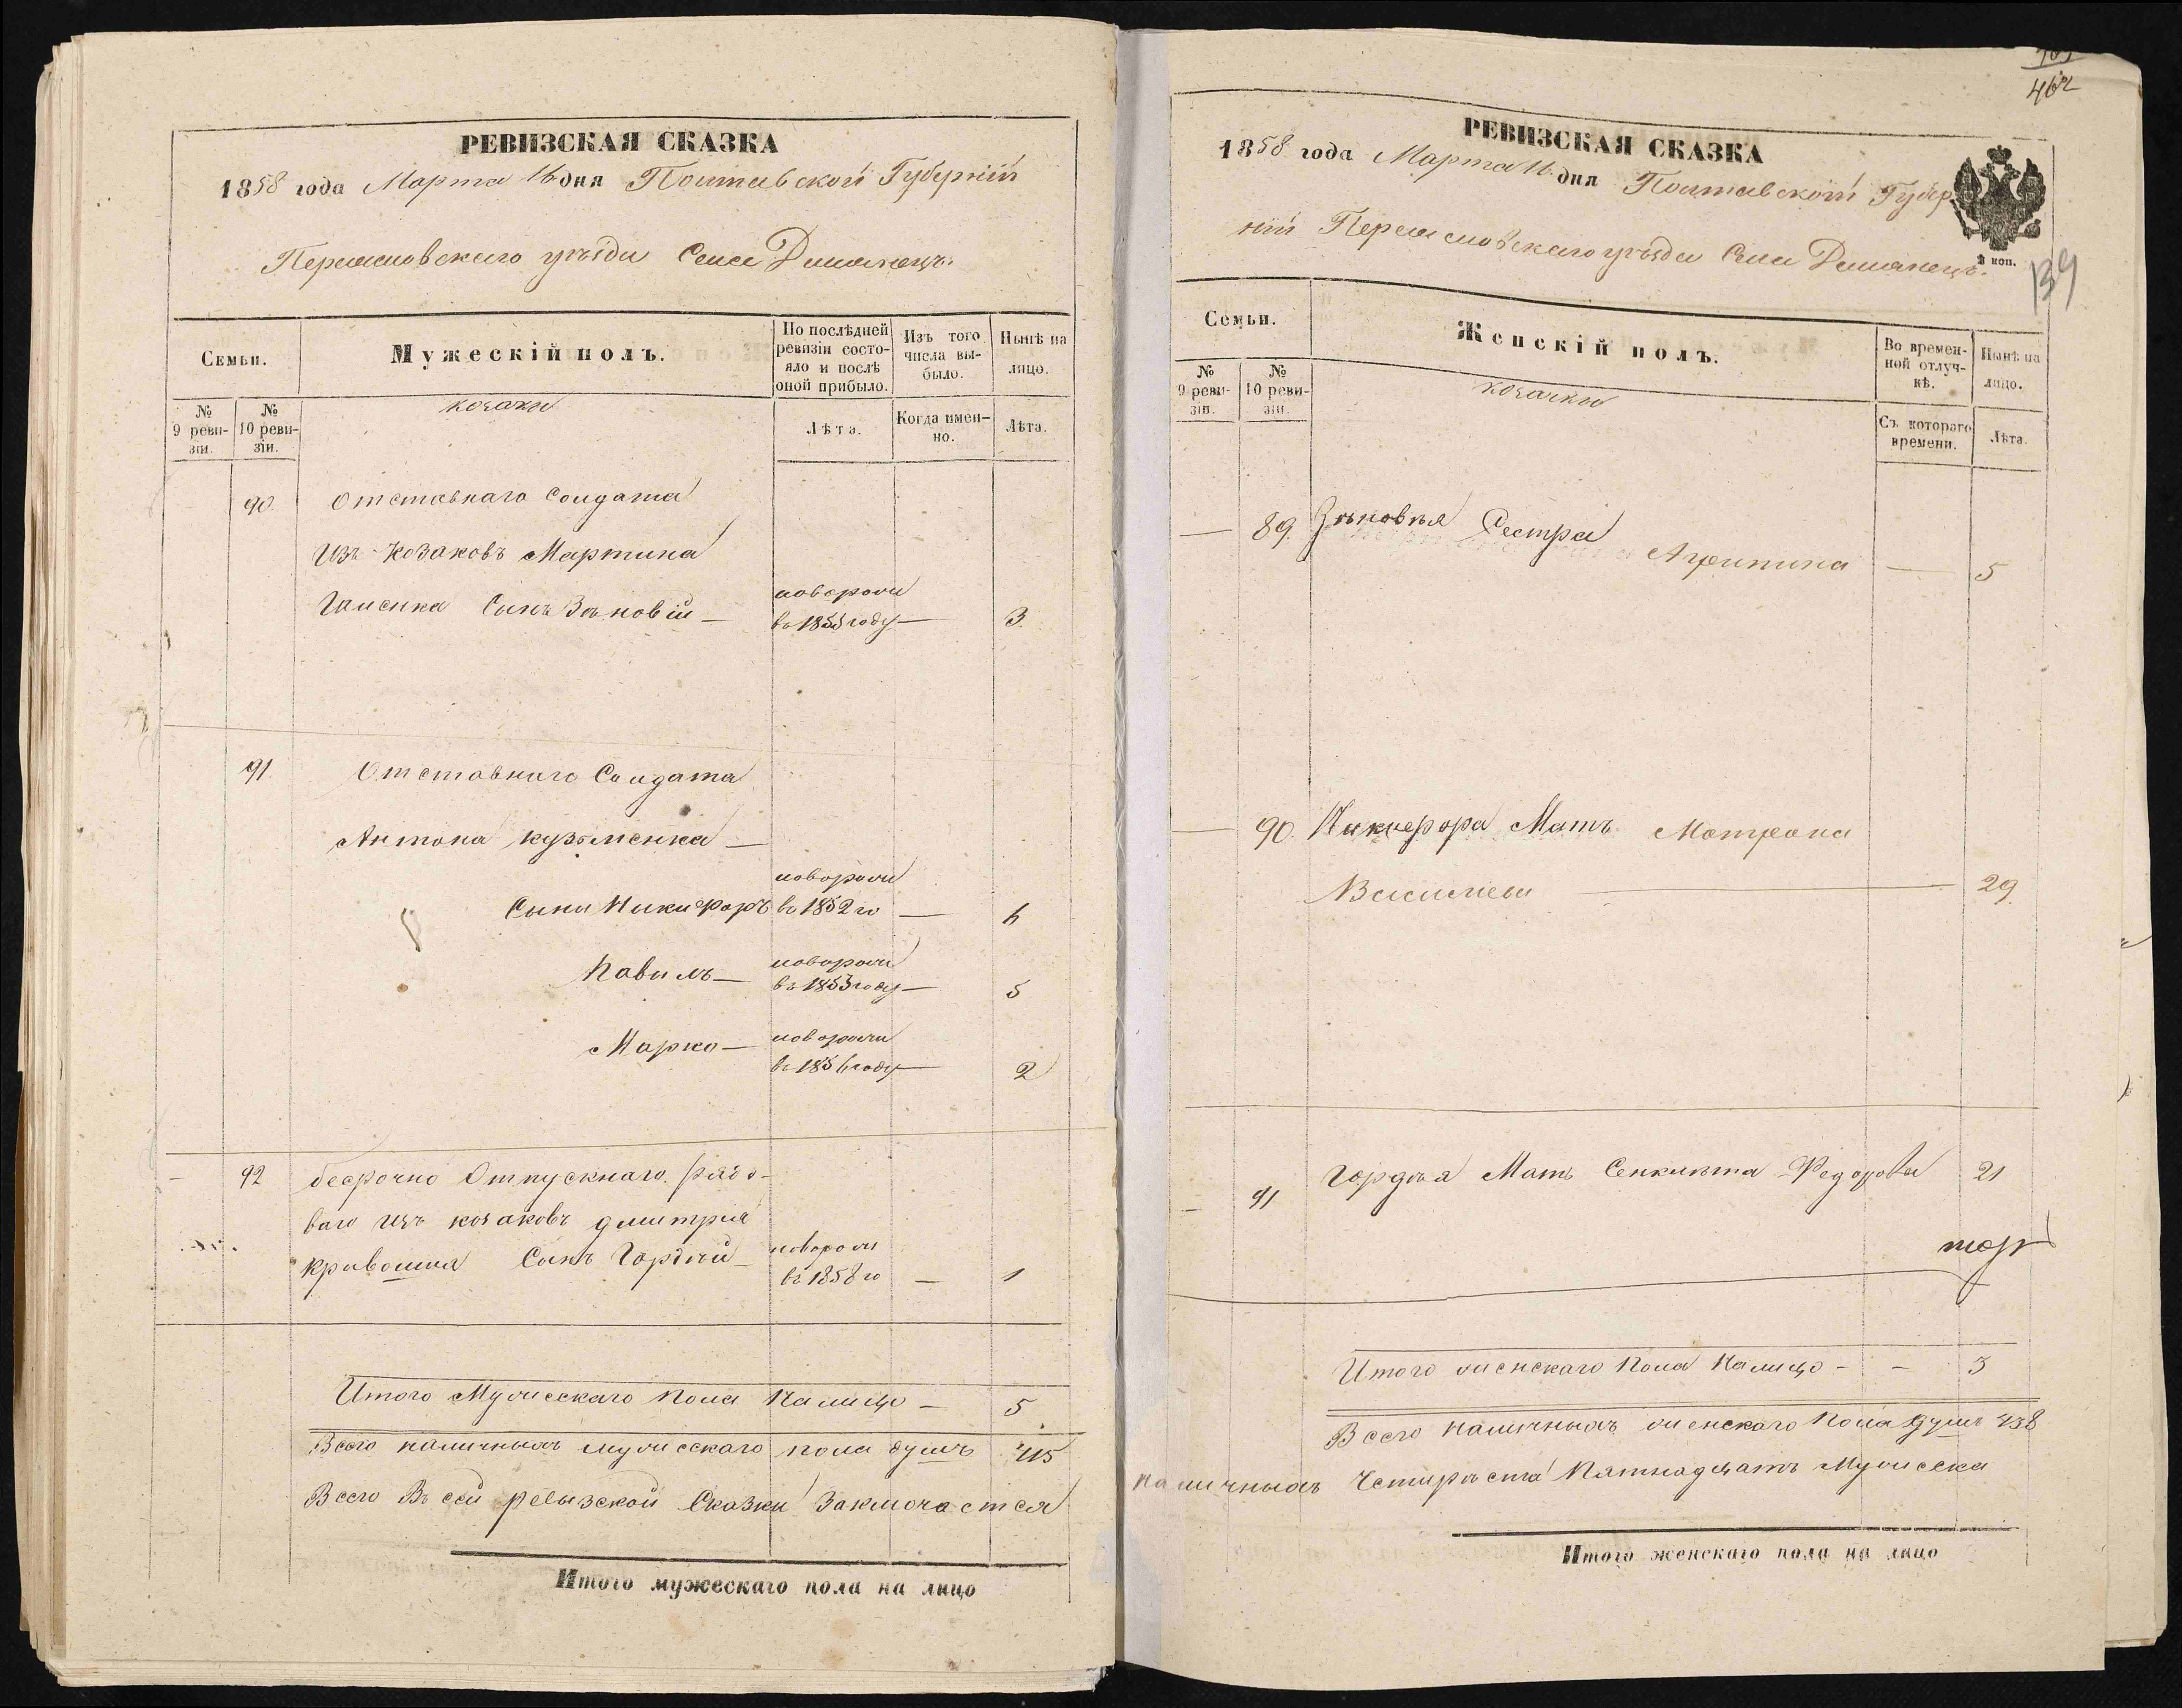 РЕВИЗСКАЯ СКАЗКА
1858 года Марта 16 дня Полтавской Губерніи
Переяславскаго уѣзда Села Деманецъ.
Семьи.
Мужескій полъ.
По послѣдней ревизіи состояло и послѣ оной прибыло.
Изъ того числа выбыло.
Нынѣ на лицо.
№ 9 ревизіи.
№ 10 ревизіи.
козаки
Лѣта.
Когда именно.
Лѣта.
90. Отставнаго Солдата
Изъ Козаковъ Мартина
новорож
сынъ Зѣновій — въ 1855 году — 3.
91. Отставнаго Солдата
Антона Кузьменка —
новорож
Сыни Никифоръ въ 1852 го — 6
новорож
Павилъ — въ 1853 году — 5
новорож
Марко — въ 1856 году — 2
— 92 бесрочно Отпускнаго рядо-
ваго изъ козаковъ дмитрия
новорож
кривошия Сынъ Гордѣй — въ 1858 го — 1
Итого Мужескаго пола На лицо — 5
Всего наличныхъ мужескаго пола душъ 415
Всего Въ сей ревызской Сказки Заключается
Итого мужескаго пола на лицо
462
РЕВИЗСКАЯ СКАЗКА
1858 года Марта 16 дня Полтавской Губер
ніи Переяславскаго уѣзда Села Деманецъ.
коп.
139
Семьи.
Женскій полъ.
Во временной отлучкѣ.
Нынѣ на лицо.
№ 9 ревизіи.
№ 10 ревизіи.
козачки
Съ котораго времени.
Лѣта.
— 89. Зѣновѣя Сестра
Агрипина — 5
— 90. Никифора Мать Мотрона
Василіева — 29
— 91 Гордѣя Мать Сенклѣта Федорова 21
Итого женскаго пола На лицо - - 3
Всего наличныхъ женскаго пола душъ 458
наличныхъ Четыреста Пятнадцать Мужеска
Итого женскаго пола на лицо